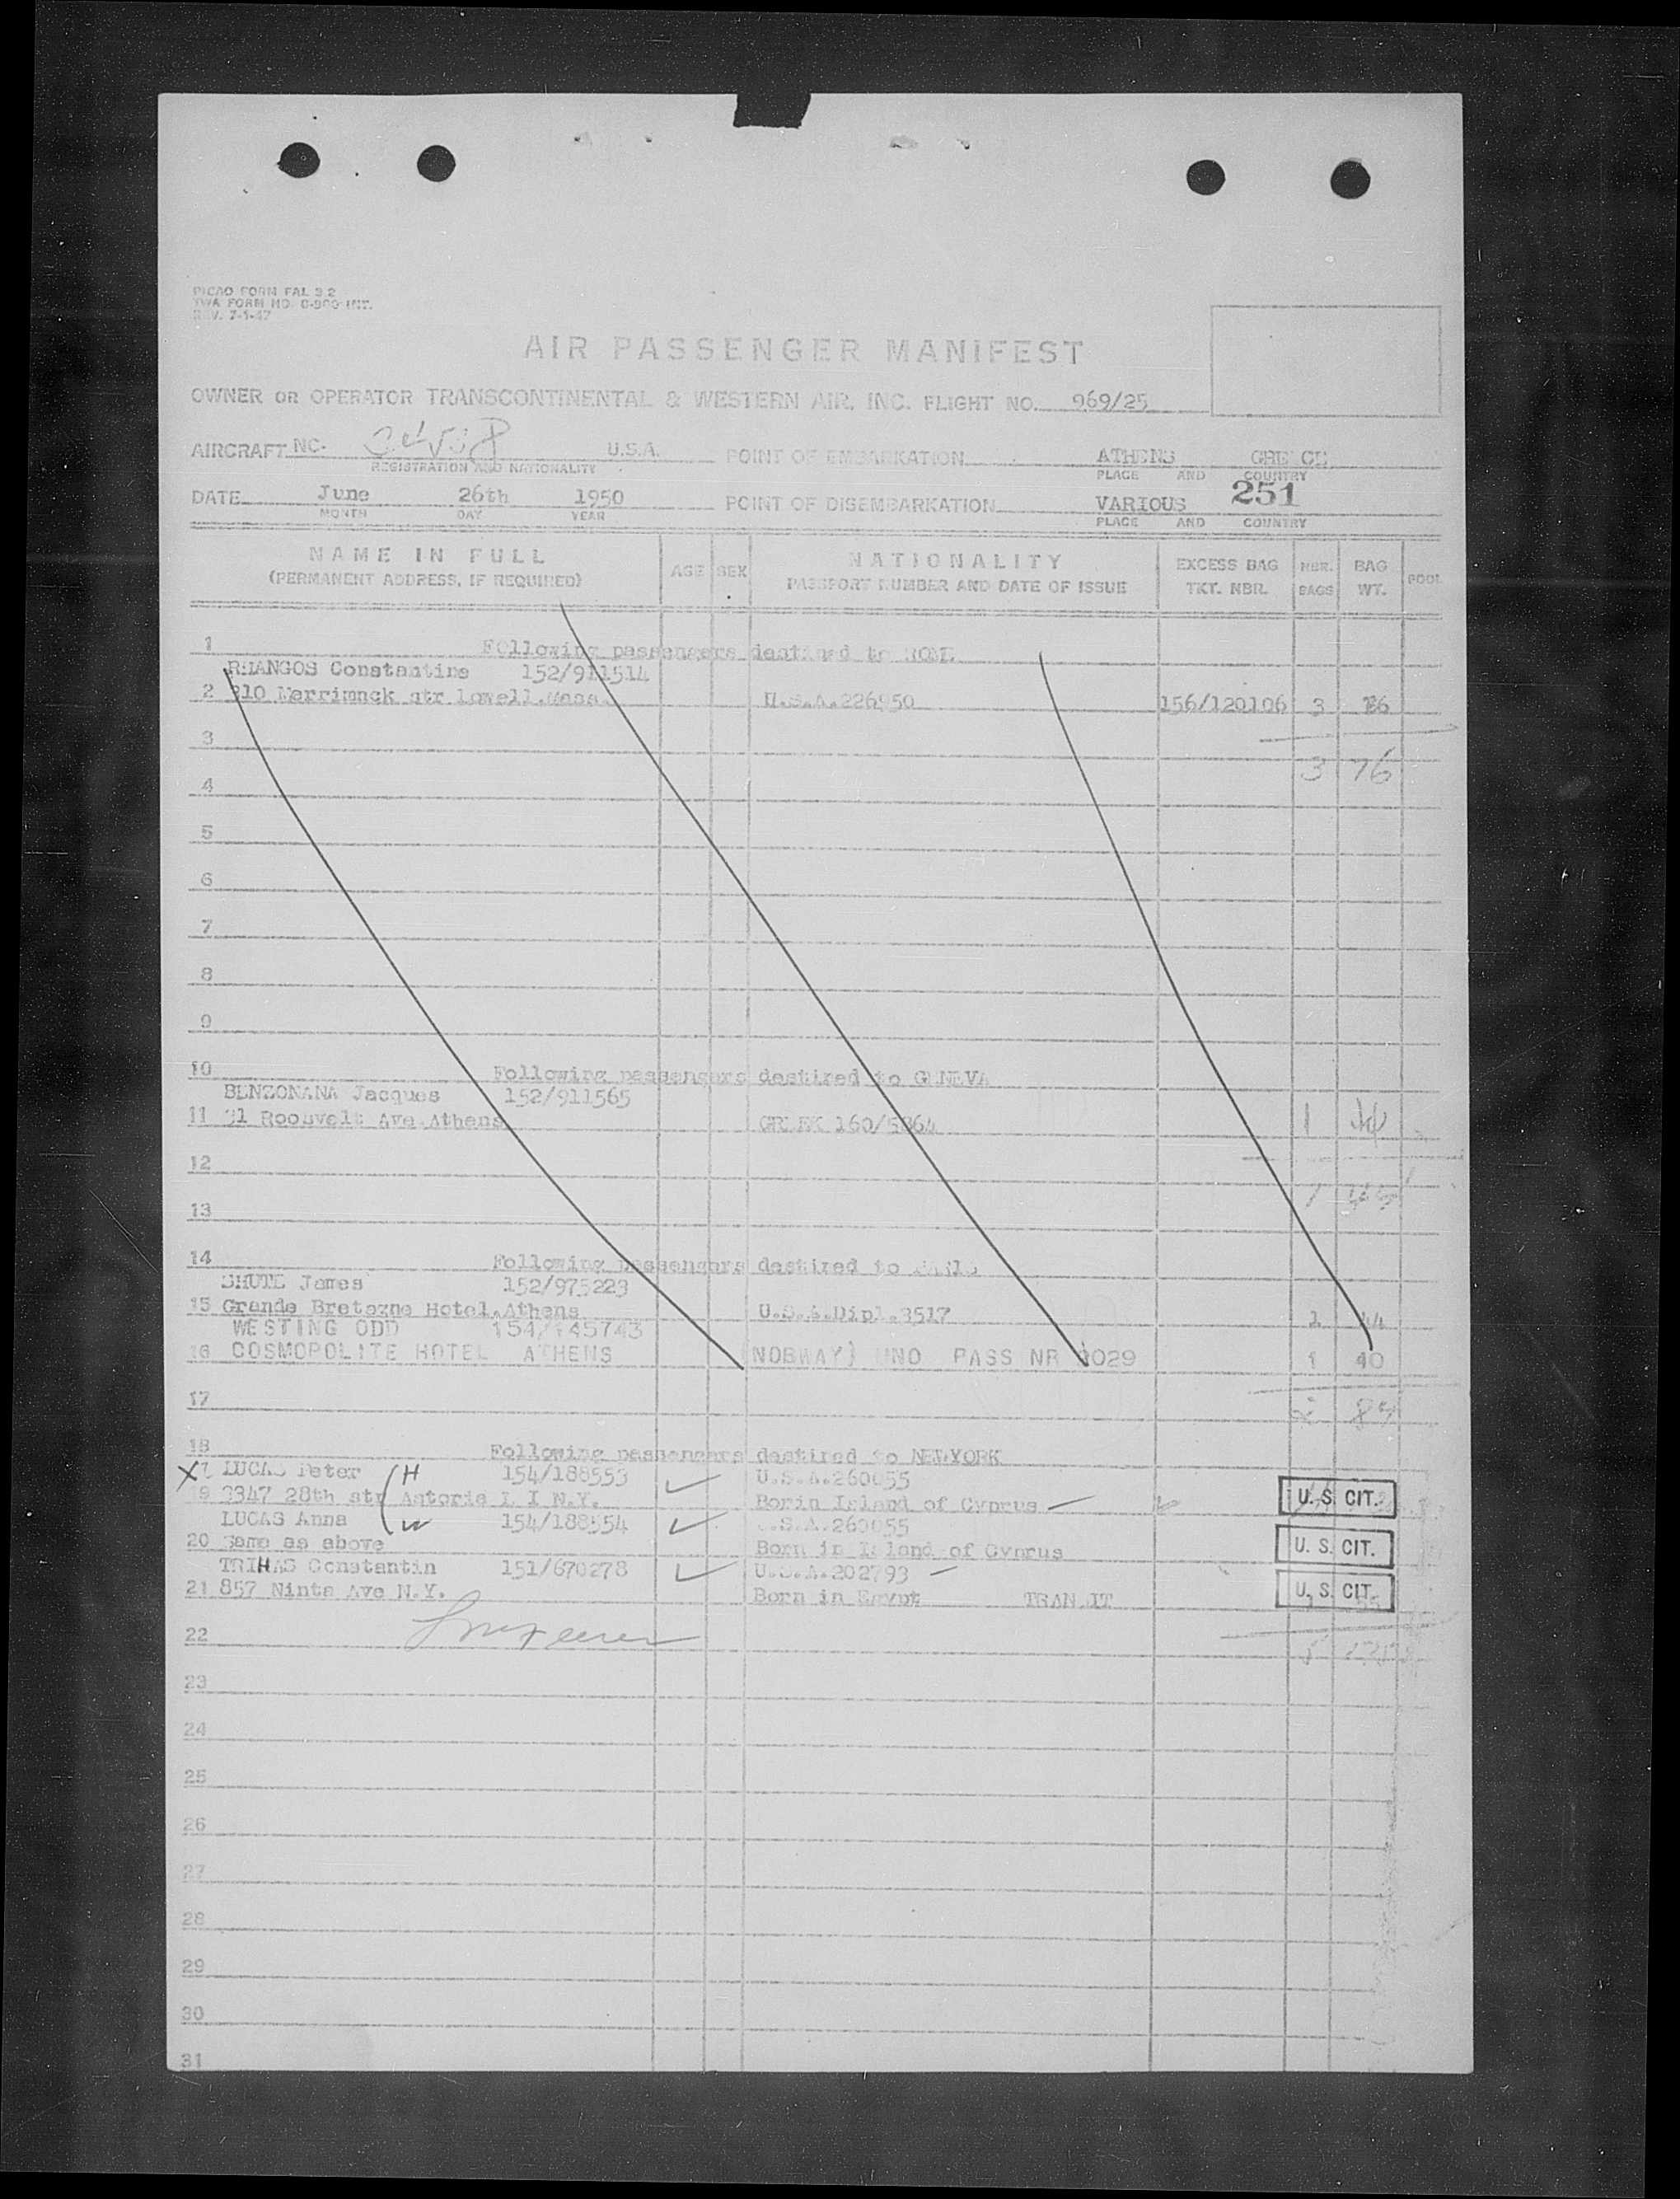 PICAO FORM FAL 3.2
TWA FORM NO. INT.
REV. 7-1-47
AIR PASSENGER MANIFEST
OWNER OR OPERATOR TRANSCONTINENTAL & WESTERN AIR, INC. FLIGHT NO. 969/25
AIRCRAFT NC- U.S.A. POINT OF EMBARKATION ATHENS GREECE
REGISTRATION AND NATIONALITY PLACE AND COUNTRY
251
DATE June 26th 1950 POINT OF DISEMBARKATION VARIOUS
MONTH DAY YEAR PLACE AND COUNTRY
NAME IN FULL AGE SEX NATIONALITY EXCESS BAG NBR. BAG POOL
(PERMANENT ADDRESS, IF REQUIRED) PASSPORT NUMBER AND DATE OF ISSUE TKT. NBR. BAGS WT.
1 Following passengers destined to ROME
RHANGOS Constantine 152/911514
2 810 Merrimack str Lowell.Mass. U.S.A. 156/120106 3 76
3
3 76
4
5
6
7
8
9
10 Following passengers destired to GENEVA
BENZONANA Jacques 152/911565
11 31 Roosvelt Ave.Athens GREEK 160/5864 1
12
13
14 Following passengers destired to PARIS
SHUTE James 152/975223
15 Grande Bretagne Hotel.Athens U.S.A.Dipl.3517 44
WESTING ODD
16 COSMOPOLITE HOTEL ATHENS (NORWAY) UNO PASS NR 1 40
17 84
18 Following passengers destired to NEW.YORK
X LUCAS Peter (H 154/188553 U.S.A.260055
19 3347 28th str Astoria L I N.Y. Borin Island of Cyprus U. S. CIT.
LUCAS Anna W 154/188554 U.S.A.260055
20 Same as above Born in Island of Cyprus U. S. CIT.
TRIHAS Constantin 151/670278 U.S.A.202793
21 857 Ninta Ave N.Y. Born in Egypt TRANSIT U. S. CIT.
22
23
24
25
26
27
28
29
30
31